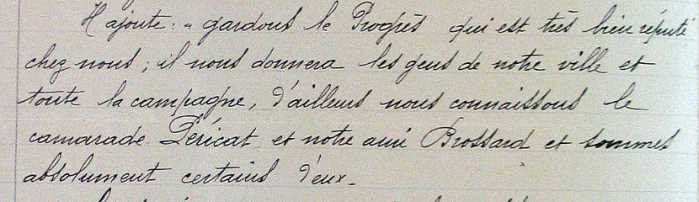 Il ajoute : " gardons le Progrès qui est très bien réputé
chez nous ; il nous donnera les gens de notre ville et
toute la campagne, d'ailleurs nous connaissons le
camarade Péricat et notre ami Brossard et sommes
absolument certains d'eux.